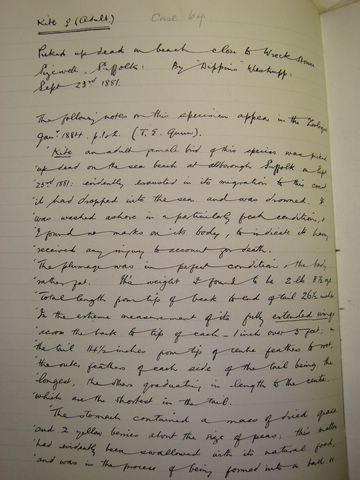 Kite ♀ (Adult.) Case 64
Picked up dead on beach close to Wreck House
Sizewell. Suffolk. By "Dippins" Westrupp.
Sept 23rd 1881.
The following notes on this specimen appear in the Zoologist
Jan' 1884. p. 1 & 2. (T. E. Gunn).
"Kite an adult female bird of this species was picked
'up dead on the sea beach at Aldborough Suffolk on Sept
'23rd 1881: evidently exhausted in its migration to this coast
'it had dropped into the sea and was drowned. It
'was washed ashore in a particularly fresh condition, &
'I found no marks on its body, to indicate its having
'received any injury to account for death.
'The plumage was in perfect condition & the body
'rather fat. This weight I found to be 2 lb 8½ ozs
'Total length from tip of beak to end of tail 26½ inches
'In the extreme measurement of its fully extended wings
'across the back to tip of each - 1 inch over 5 feet, &
'the tail 14½ inches from tip of centre feathers to root,
'the outer feathers of each side of the tail being the
'longest, the others graduating in length to the centre,
'which are the shortest in the tail.
'The stomach contained a mass of dried grass
'and 2 yellow berries about the size of peas; this matter
'had evidently been swallowed with its natural food,
'and was in the process of being formed into a ball